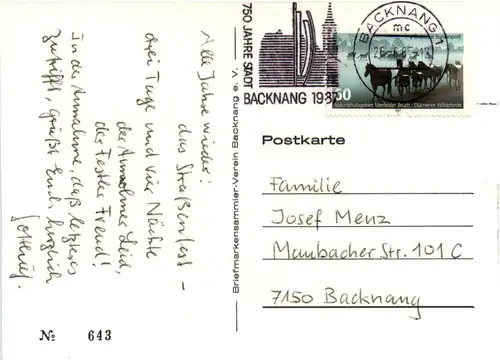 Alle Jahre wieder:
das Straßenfest –
drei Tage und vier Nächte
der Anwohner Leid,
der Festler Freud!
In der Annahme, daß letzteres
zutrifft, grüßt Euch herzlich
Nº 643
Briefmarkensammler-Verein Backnang e. V.
750 JAHRE STADT
BACKNANG 1987
BACKNANG 1
mc
Naturschutzgebiet Merfelder Bruch · Dülmener Wildpferde
Postkarte
Familie
Josef Menz
Maubacher Str. 101 C
7150 Backnang